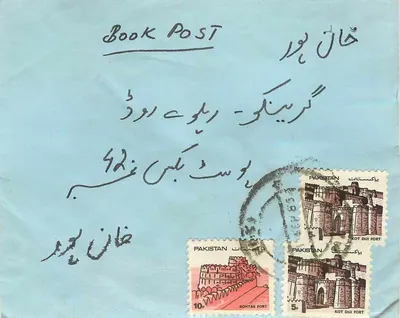 BOOK POST
خان پور
گرینکو - ریلوے روڈ
پوسٹ بکس نمبر 42
خان پور
PAKISTAN پاکستان
KOT DIJI FORT
PAKISTAN پاکستان
10
ROHTAS FORT
5
KOT DIJI FORT